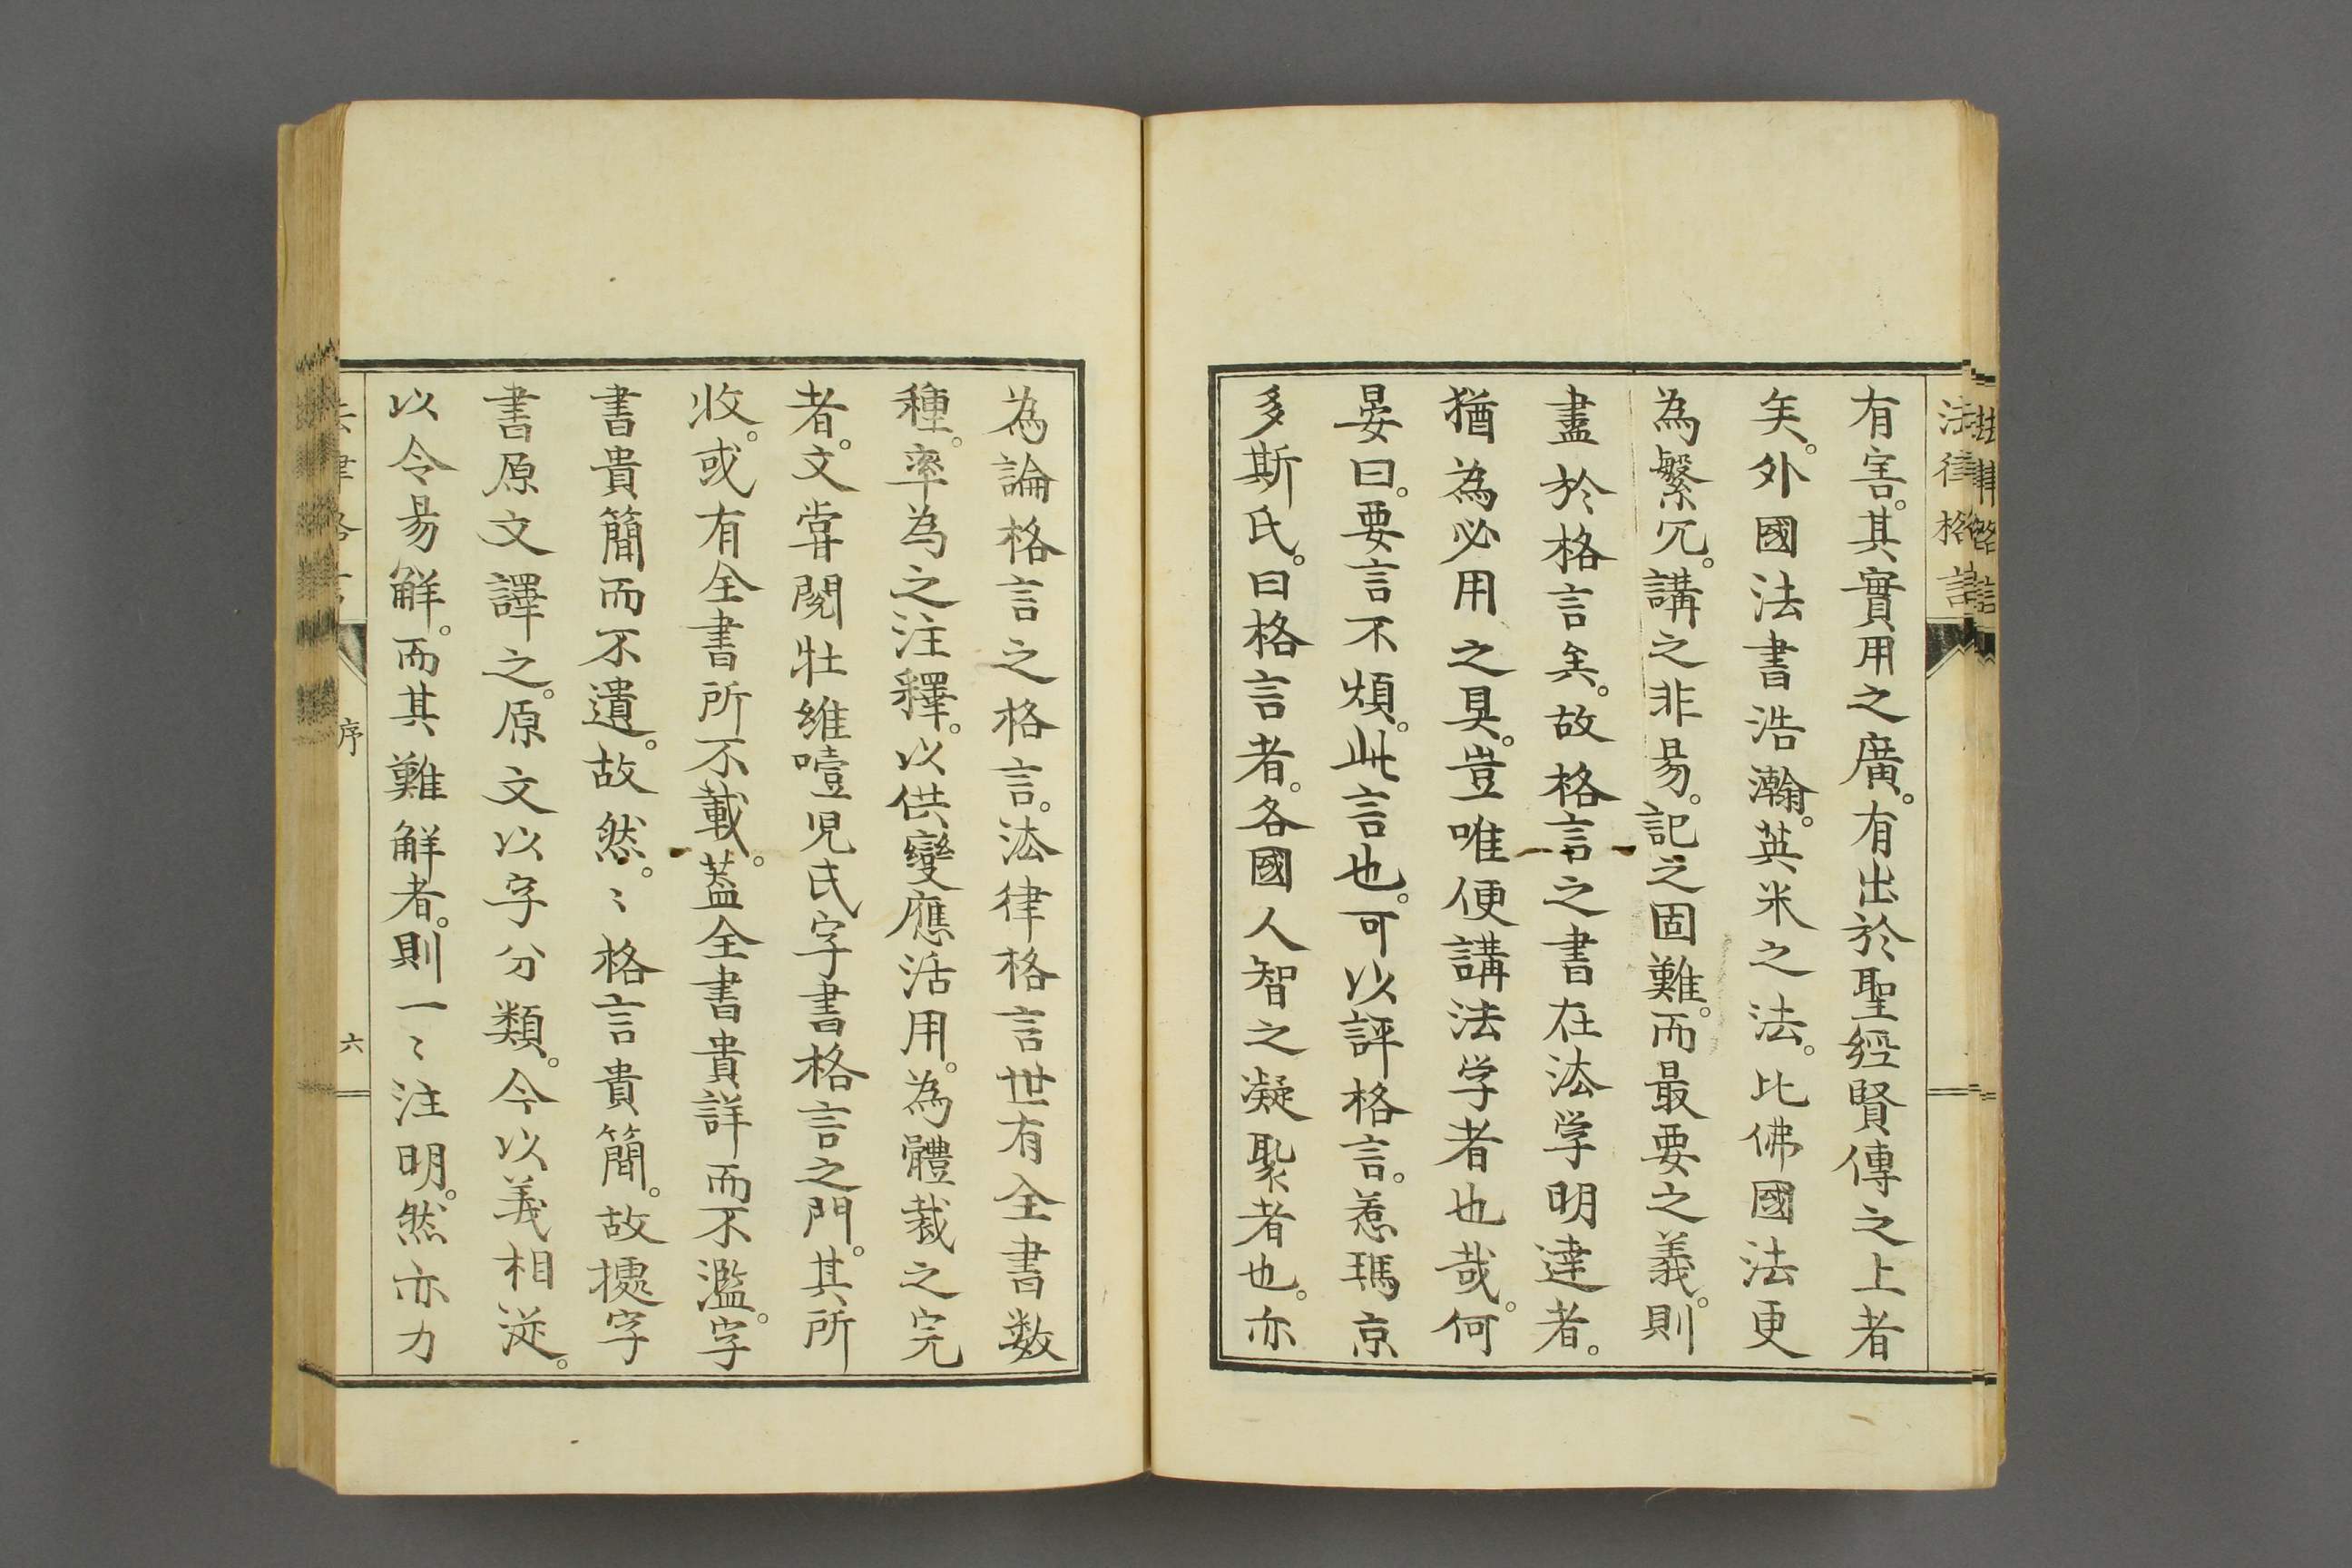 法律格言
有害。其實用之廣。有出於聖經賢傳之上者
矣。外國法書浩瀚。英米之法。比佛國法更
為繁冗。講之非易。記之固難。而最要之義。則
盡於格言矣。故格言之書在法学明達者。
猶為必用之具。豈唯便講法学者也哉。何
晏曰。要言不煩。此言也。可以評格言。惹瑪京
多斯氏。曰格言者。各國人智之凝聚者也。亦
為論格言之格言。法律格言世有全書数
種。率為之注釋。以供變應活用。為體裁之完
者。文甞閱牡維噎児氏字書格言之門。其所
收。或有全書所不載。蓋全書貴詳而不濫。字
書貴簡而不遺。故然。〻格言貴簡。故據字
書原文譯之。原文以字分類。今以義相从。
以令易解。而其難解者。則一〻注明。然亦力
序
六